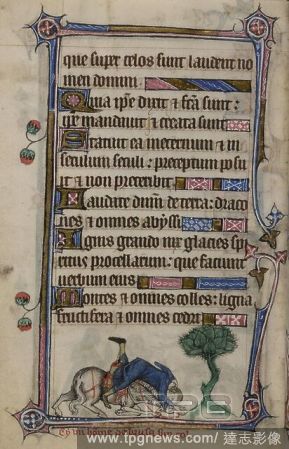 que super celos sunt laudent no
men domini
Quia ip̃e dixit ⁊ fc̃a sunt:
ip̃e mandauit ⁊ creata sunt
Statuit ea in eternum ⁊ in
seculum seculi: preceptum posu
it ⁊ non preteribit
Laudate dñm de terra: draco
nes ⁊ omnes abyssi
Ignis grando nix glacies spi
ritus procellarum: que faciunt
uerbum eius
Montes ⁊ omnes colles: ligna
fructifera ⁊ omnes cedri
Cy un home
TPG
www.tpgnews.com / 達志影像